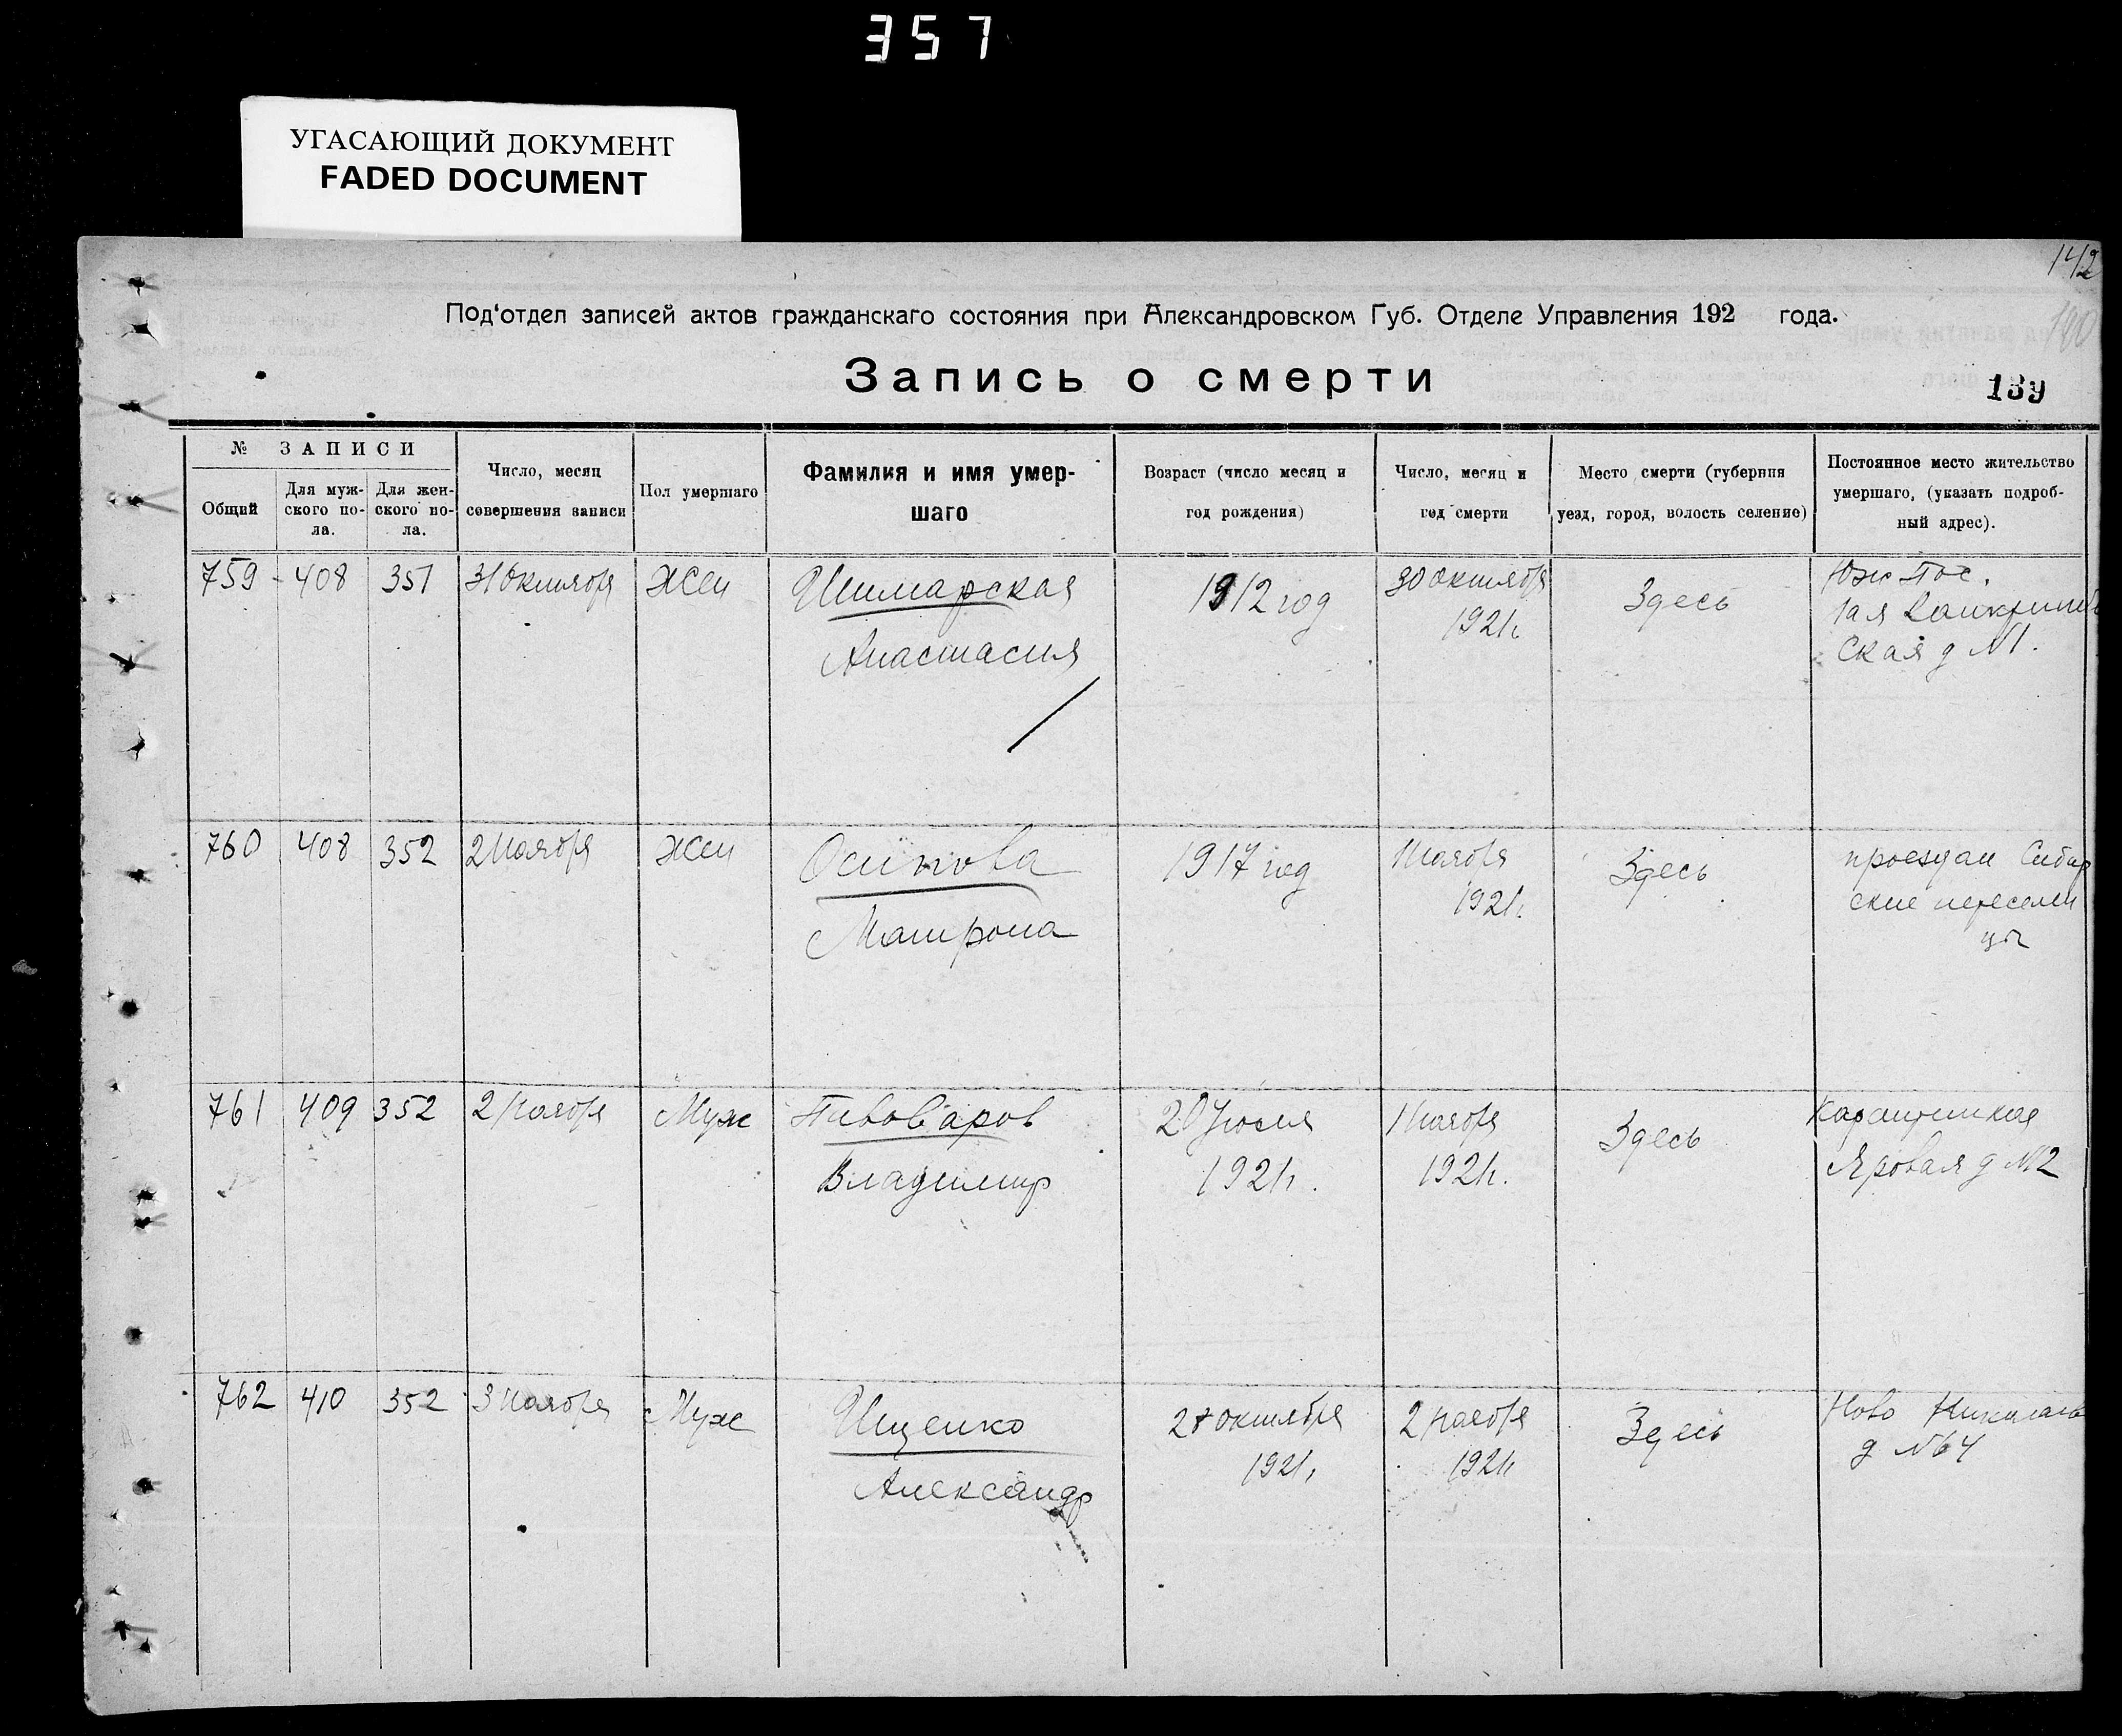 357
УГАСАЮЩИЙ ДОКУМЕНТ
FADED DOCUMENT
142
Под'отдел записей актов гражданскаго состояния при Александровском Губ. Отделе Управления 192 года.
140
Запись о смерти
139
№ ЗАПИСИ
Общий
Для муж-
ского по-
ла.
Для жен-
ского по-
ла.
Число, месяц
совершения записи
Пол умершаго
Фамилия и имя умер-
шаго
Возраст (число месяц и
год рождения)
Число, месяц и
год смерти
Место смерти (губерния
уезд, город, волость селение)
Постоянное место жительство
умершаго, (указать подроб-
ный адрес).
759 - 408 351 31 октября Жен
Шимарская
Анастасия
1912 год
30 октября
1921 г.
Здесь
Юж Пос.
1ая
ская д №1.
760 408 352 2 Ноября Жен
Осипова
Матрона
1917 год
1 Ноября
1921 г.
Здесь
проездом Сибир
ские переселен
цы
761 409 352 2 Ноября Муж
Пивоваров
Владимир
20 Июля
1921 г.
1 Ноября
1921 г.
Здесь
Яровая д №2
762 410 352 3 Ноября Муж
Ищенко
Александр
27 октября
1921 г.
2 Ноября
1921 г.
Здесь
Ново
д №64